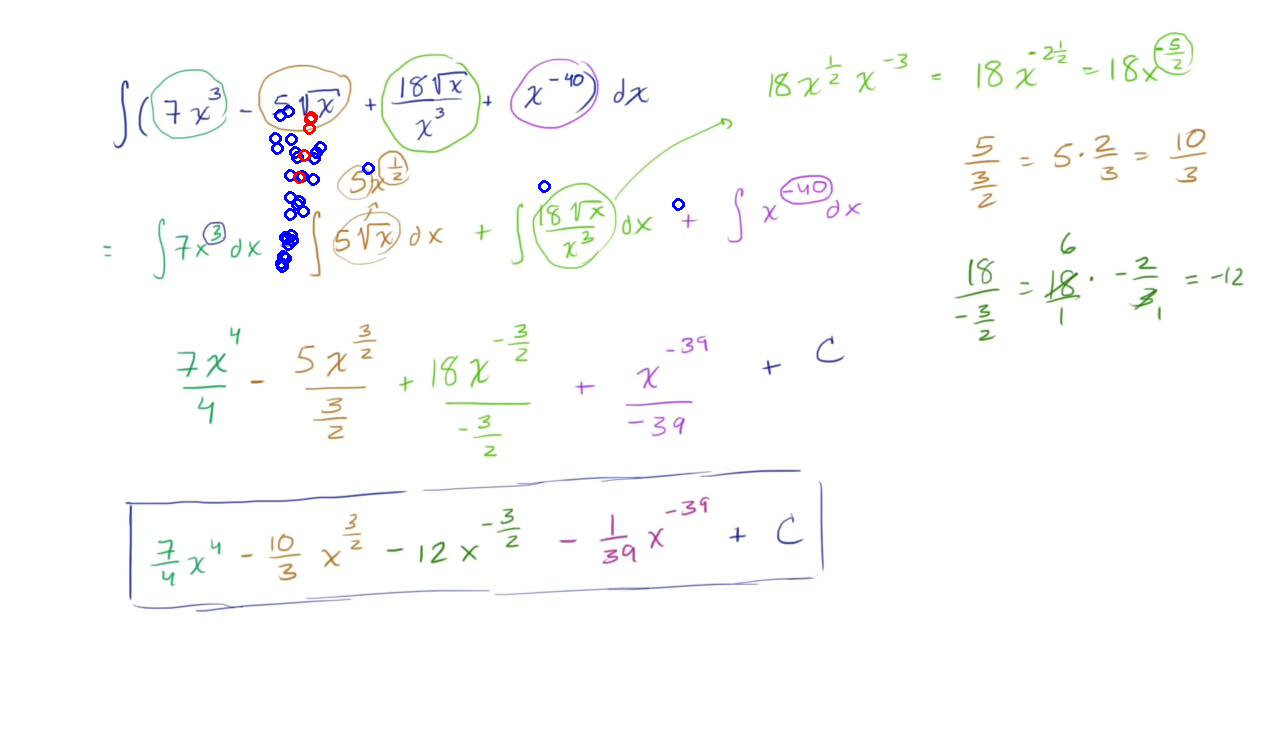 ∫(7x³ - 5√x + 18√x/x³ + x⁻⁴⁰) dx
5x^(1/2)
= ∫7x³ dx ∫5√x dx + ∫18√x/x³ dx + ∫x⁻⁴⁰ dx
7x⁴/4 - 5x^(3/2)/(3/2) + 18x^(-3/2)/(-3/2) + x⁻³⁹/-39 + C
7/4 x⁴ - 10/3 x^(3/2) - 12x^(-3/2) - 1/39 x⁻³⁹ + C
18x^(1/2) x⁻³ = 18x^(-2 1/2) = 18x^(-5/2)
5/(3/2) = 5 · 2/3 = 10/3
6
18/(-3/2) = 18/1 · -2/3 = -12
1